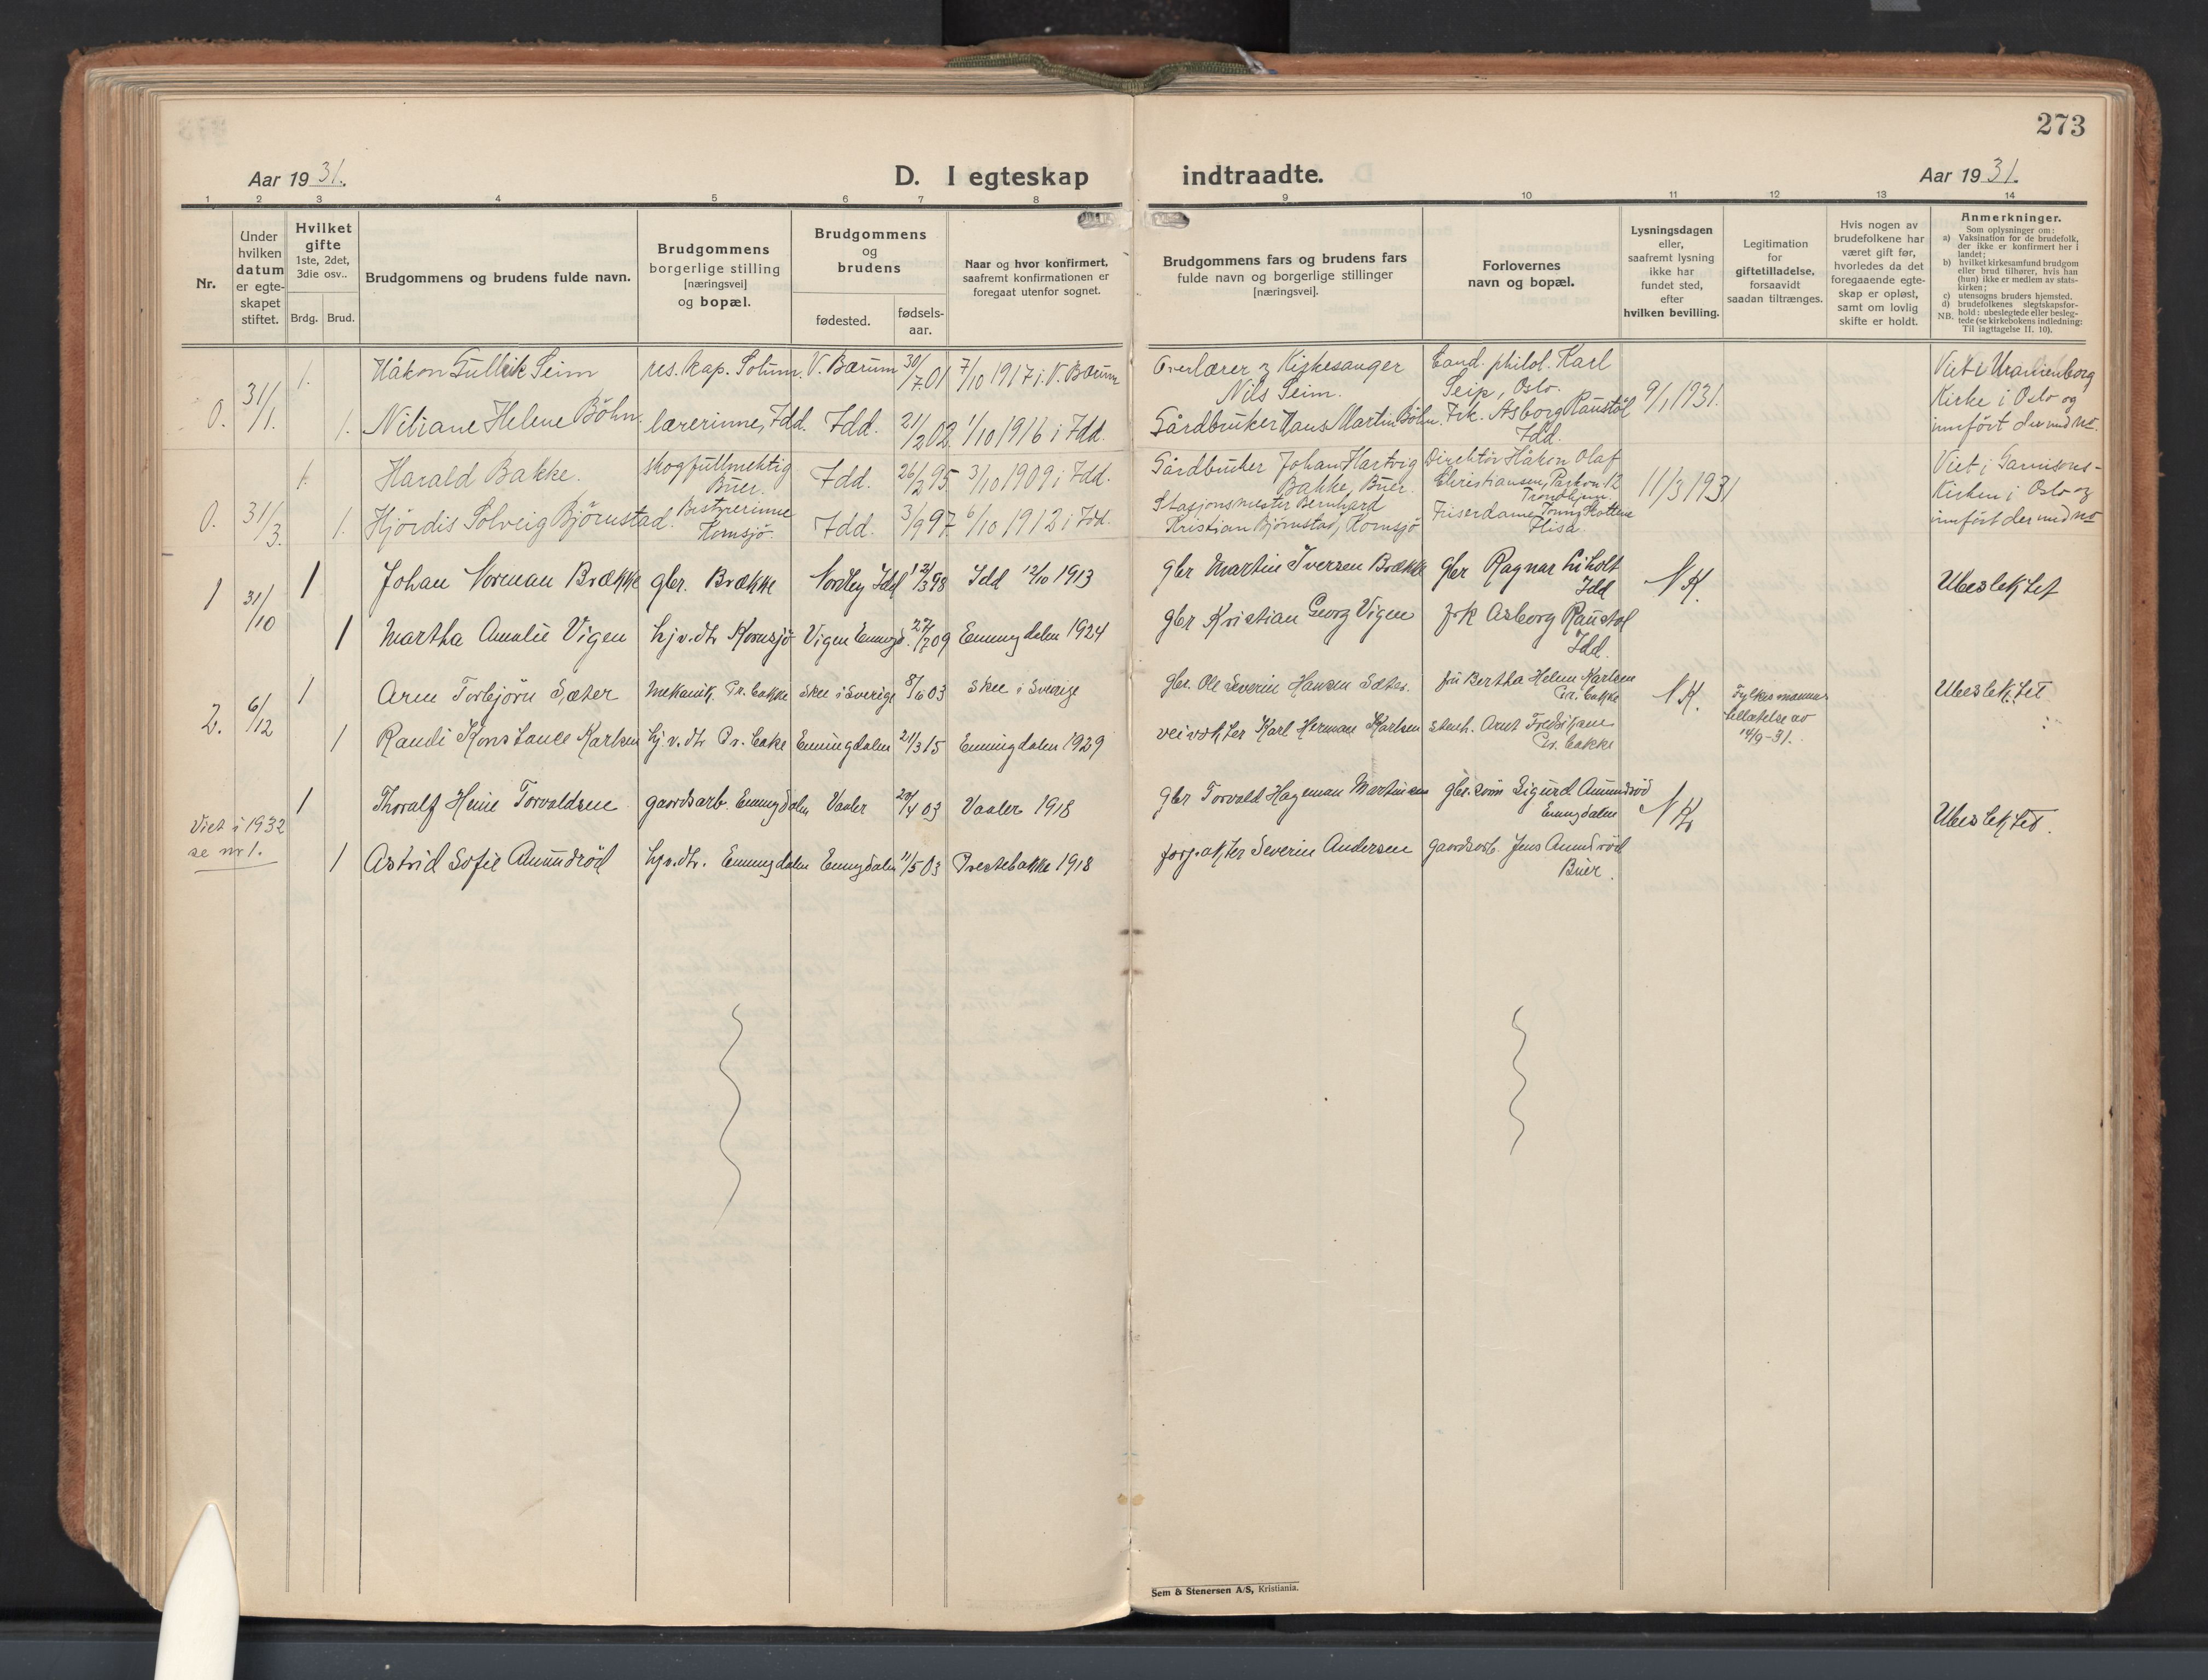 273
Aar 1931.
D. I egteskap
indtraadte.
Aar 1931.
1 2 3 4 5 6 7 8 9 10 11 12 13 14
Nr.
Under
hvilken
datum
er egte-
skapet
stiftet.
Hvilket
gifte
1ste, 2det,
3die osv..
Brdg. Brud.
Brudgommens og brudens fulde navn.
Brudgommens
borgerlige stilling
[næringsvei]
og bopæl.
Brudgommens
og
brudens
fødested.
fødsels-
aar.
Naar og hvor konfirmert,
saafremt konfirmationen er
foregaat utenfor sognet.
Brudgommens fars og brudens fars
fulde navn og borgerlige stillinger
[næringsvei].
Forlovernes
navn og bopæl.
Lysningsdagen
eller,
saafremt lysning
ikke har
fundet sted,
efter
hvilken bevilling.
Legitimation
for
giftetilladelse,
forsaavidt
saadan tiltrænges.
Hvis nogen av
brudefolkene har
været gift før,
hvorledes da det
foregaaende egte-
skap er opløst,
samt om lovlig
skifte er holdt.
Anmerkninger.
Som oplysninger om:
a) Vaksination for de brudefolk,
der ikke er konfirmert her i
landet;
b) hvilket kirkesamfund brudgom
eller brud tilhører, hvis han
(hun) ikke er medlem av stats-
kirken;
c) utensogns bruders hjemsted.
d) brudefolkenes slegtskapsfor-
hold: ubeslegtede eller besleg-
NB. tede (se kirkebokens indledning:
Til iagttagelse II. 10).
0. 31/1.
1. Håkon Gullik Seim
res. kap. Solum.
V. Bærum
30/7.01
7/10 1917 i V. Bærum
Overlærer og Kirkesanger
Nils Seim.
Cand. philol. Karl
Seip, Oslo.
9/1 1931.
Viet i Uranienborg
Kirke i Oslo og
innført der med no.
1. Niliane Helene Böhn.
lærerinne, Idd.
Idd.
21/2 02
1/10 1916 i Idd.
Gårdbruker Hans Martin Böhn.
Frk. Asborg Raustöl
Idd.
0. 31/3.
1. Harald Bakke.
skogfullmektig
Buer.
Idd.
26/2 95
3/10 1909 i Idd.
Gårdbruker Johan Hartvig
Bakke, Buer.
Direktör Håkon Olaf
Christiansen, Parkvn. 12
Trondhjem.
11/3 1931
Viet i Garnisons-
kirken i Oslo og
innført der med no
1. Hjördis Solveig Björnstad.
Bestyrerinne
Kornsjö.
Idd.
3/9 97
6/10 1912 i Idd.
Stasjonsmester Bernhard
Kristian Björnstad, Kornsjö
Friserdame
Flisa.
1 31/10
1 Johan Norman Brække
gbr. Brække
Nordby Idd
12/3 98
Idd 12/10 1913
gbr Martin Iversen Brække
gbr Ragnar Liholt
Idd
N K.
Ubeslektet
1 Martha Amalie Vigen
hj.v.dtr Kornsjö
Vigen Enningd.
27/7 09
Enningdalen 1924
gbr Kristian Georg Vigen
frk Asborg Raustöl
Idd.
2. 6/12
1 Arne Torbjörn Sæter
mekanik. Pr. bakke
Skee i Sverige
8/6 03
Skee i Sverige
gbr. Ole Severin Hansen Sæter.
fru Bertha Helene Karlsen
Pr. bakke
N K.
Fylkesmannens
tillatelse av
14/9-31.
Ubeslektet
1 Randi Konstance Karlsen
hj.v.dtr Pr. bake
Enningdalen
21/3 15
Enningdalen 1929
veivokter Karl Herman Karlsen
stenh. Arnt Fredriksen
Pr. bakke
Viet i 1932
se nr 1.
1 Thoralf Heine Torvaldsen
gaardsarb. Enningdalen
Vaaler
20/4 03
Vaaler 1918
gbr Torvald Hageman Martinsen
gbr. sönn Sigurd Amundröd
Enningdalen
N K
Ubeslektet.
1 Astrid Sofie Amundröd
hj.v.dtr. Enningdalen
Enningdalen
11/5 03
Prestebakke 1918
forp.akter Severin Andersen
gaardsarb. Jens Amundröd
Buer.
Sem & Stenersen A/S, Kristiania.